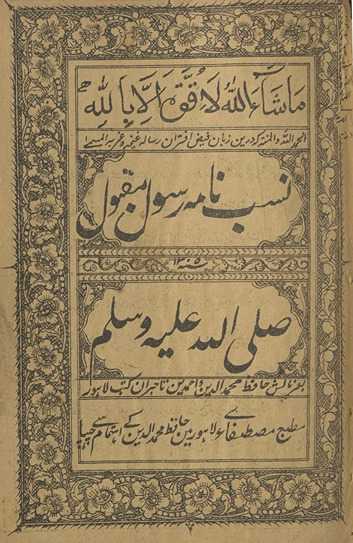 ماشاء الله لا قوة الا بالله
الحمد لله والمنه کہ درین زمان فیض اقتران رسالہ عجیبہ و غریبہ المسمے
نسب نامہ رسول مقبول
۱۳۰۵
صلی اللہ علیہ وسلم
بفرمایش حافظ محمد الدین و احمد دین تاجران کتب لاہور
مطبع مصطفائے لاہور میں حافظ محمد الدین کے اہتمام سے چھپا